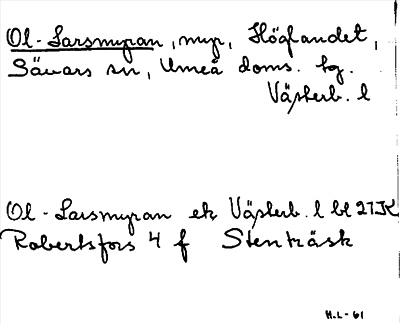 Ol-Larsmyran, myr, Höglandet,
Sävars sn, Umeå doms. tg.
Västerb. l
Ol-Larsmyran ek Västerb. l bl 21K
Robertsfors 4 f Stenträsk
H.L-61